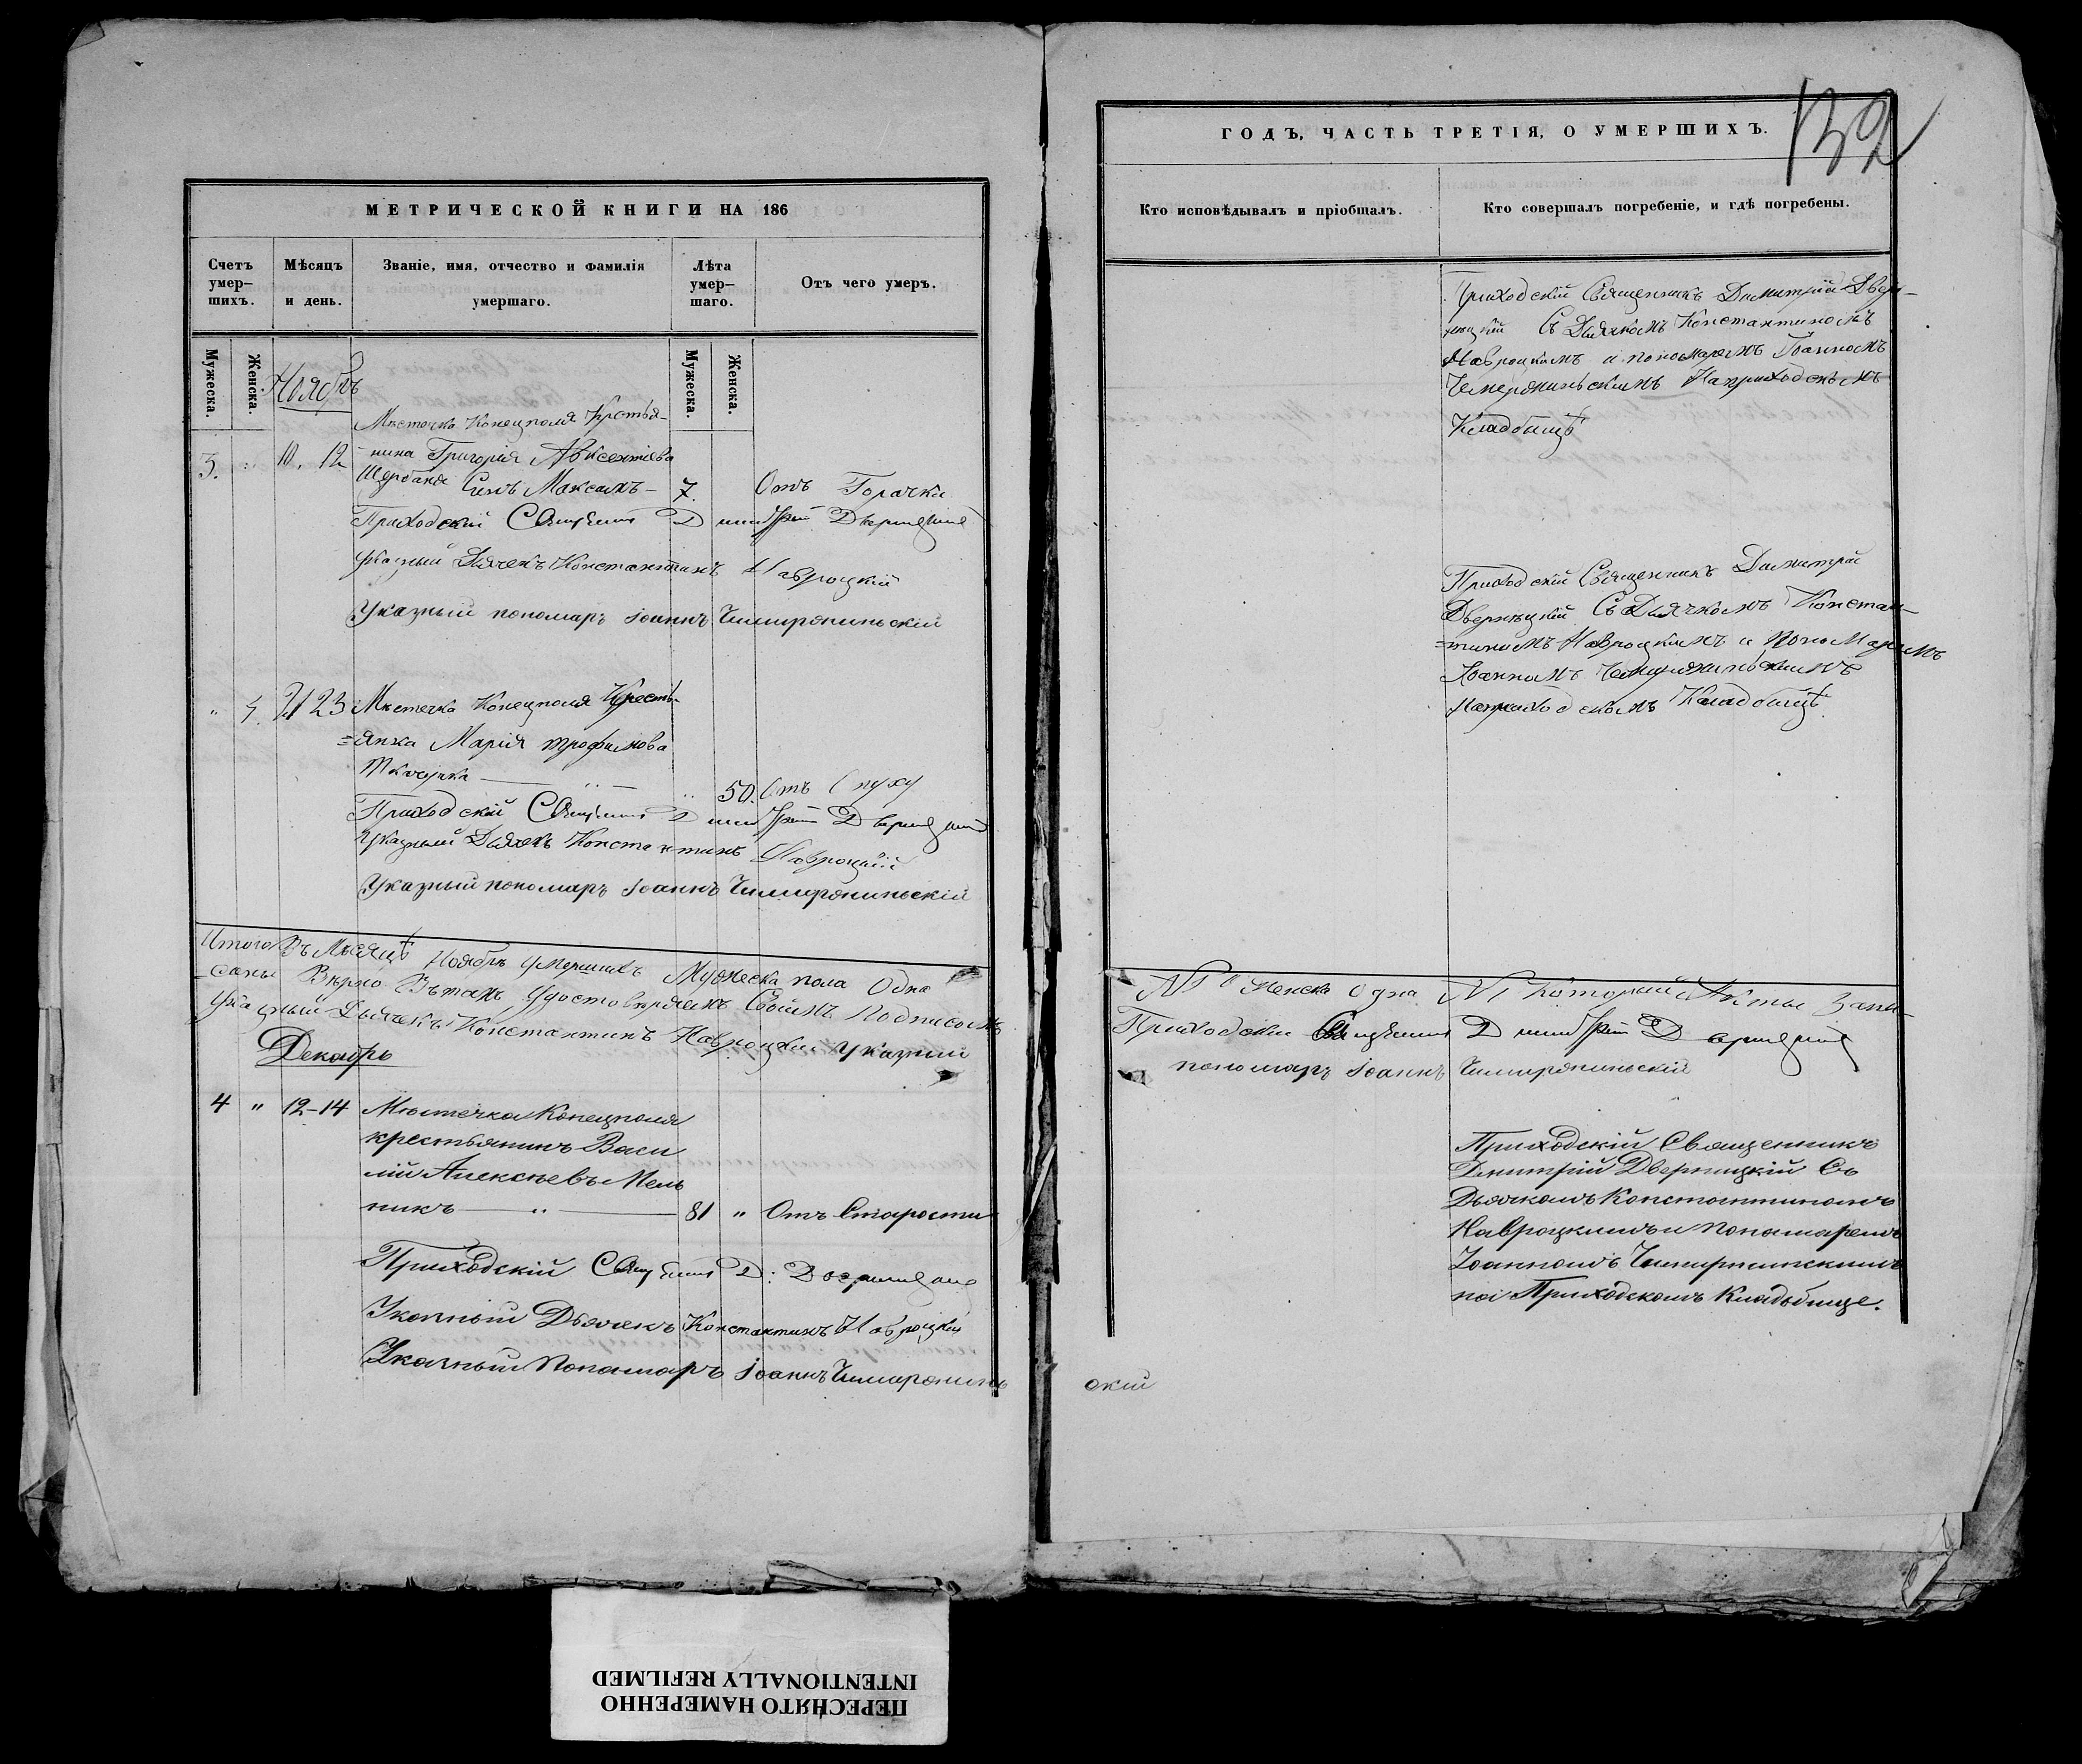 МЕТРИЧЕСКОЙ КНИГИ НА 186
Счетъ умер–шихъ.
Мѣсяцъ и день.
Званіе, имя, отчество и фамилія умершаго.
Лѣта умер–шаго.
Отъ чего умеръ.
Мужеска.
Женска.
Мужеска.
Женска.
Ноябрь
Мѣстечка Конецполя Крестья-
3. " 10. 12 нина Григорія Авксентіева
Щербаня Сынъ Максимъ – 7. Отъ Горачки
Приходскій Священникъ Димитрій Дверницкій
Указный Дьячекъ Константинъ Навроцкій
Указный пономарь Іоаннъ Чимиряниньскій
" 4. 21 23 Мѣстечка Конецполя Кресть-
=янка Марія Трофимова
" 50. Отъ Опуху
Приходскій Священникъ Димитрій Дверницкій
Указный Дьячекъ Константинъ Навроцкій
Указный пономарь Іоаннъ Чимиряниньскій
Итого Въ Мѣсяцѣ Ноябрь Умершихъ Мужеска пола Одна
–саны Вѣрно Вътомъ Удостовѣряемъ Своимъ Подписомъ
Указный Дьячекъ Константинъ Навроцкій Указный
Декабрь
4 " 12–14 Мѣстечка Конецполя
крестьянинъ Васи
лій Алексѣевъ Мель
никъ — " — 81 " Отъ Старости
Приходскій Священникъ Д: Дверницкій
Указный Дьячекъ Константинъ Навроцкій
Указный Пономарь Іоаннъ Чимирянинь
ГОДЪ, ЧАСТЬ ТРЕТІЯ, О УМЕРШИХЪ.
132
Кто исповѣдывалъ и пріобщалъ.
Кто совершалъ погребеніе, и гдѣ погребены.
Приходскій Священникъ Димитрій Двер–
ницкій Съ Дьячкомъ Константиномъ
Навроцкимъ и пономаремъ Іоанномъ
Чемеряниньскимъ Наприходскомъ
Кладбищѣ
Приходскій Священникъ Димитрій
Дверницкій Съ Дьячкомъ Констан–
=тиномъ Навроцкимъ и Пономаремъ
Іоанномъ Чемиряниньскимъ
Наприходскомъ Кладбищѣ
№ 1 Женска Одна № 1 Который Акты Запи–
Приходскій Священникъ Димитрій Дверницкій
пономарь Іоаннъ Чимиряниньскій
Приходскій Священникъ
Дмитрій Дверницкій Съ
Дьячкомъ Константиномъ
Навроцкимъ и Пономаремъ
Іоанномъ Чимирянинскимъ
на Приходскомъ Кладбище.
скій
ПЕРЕСНЯТО НАМЕРЕННО
INTENTIONALLY REFILMED